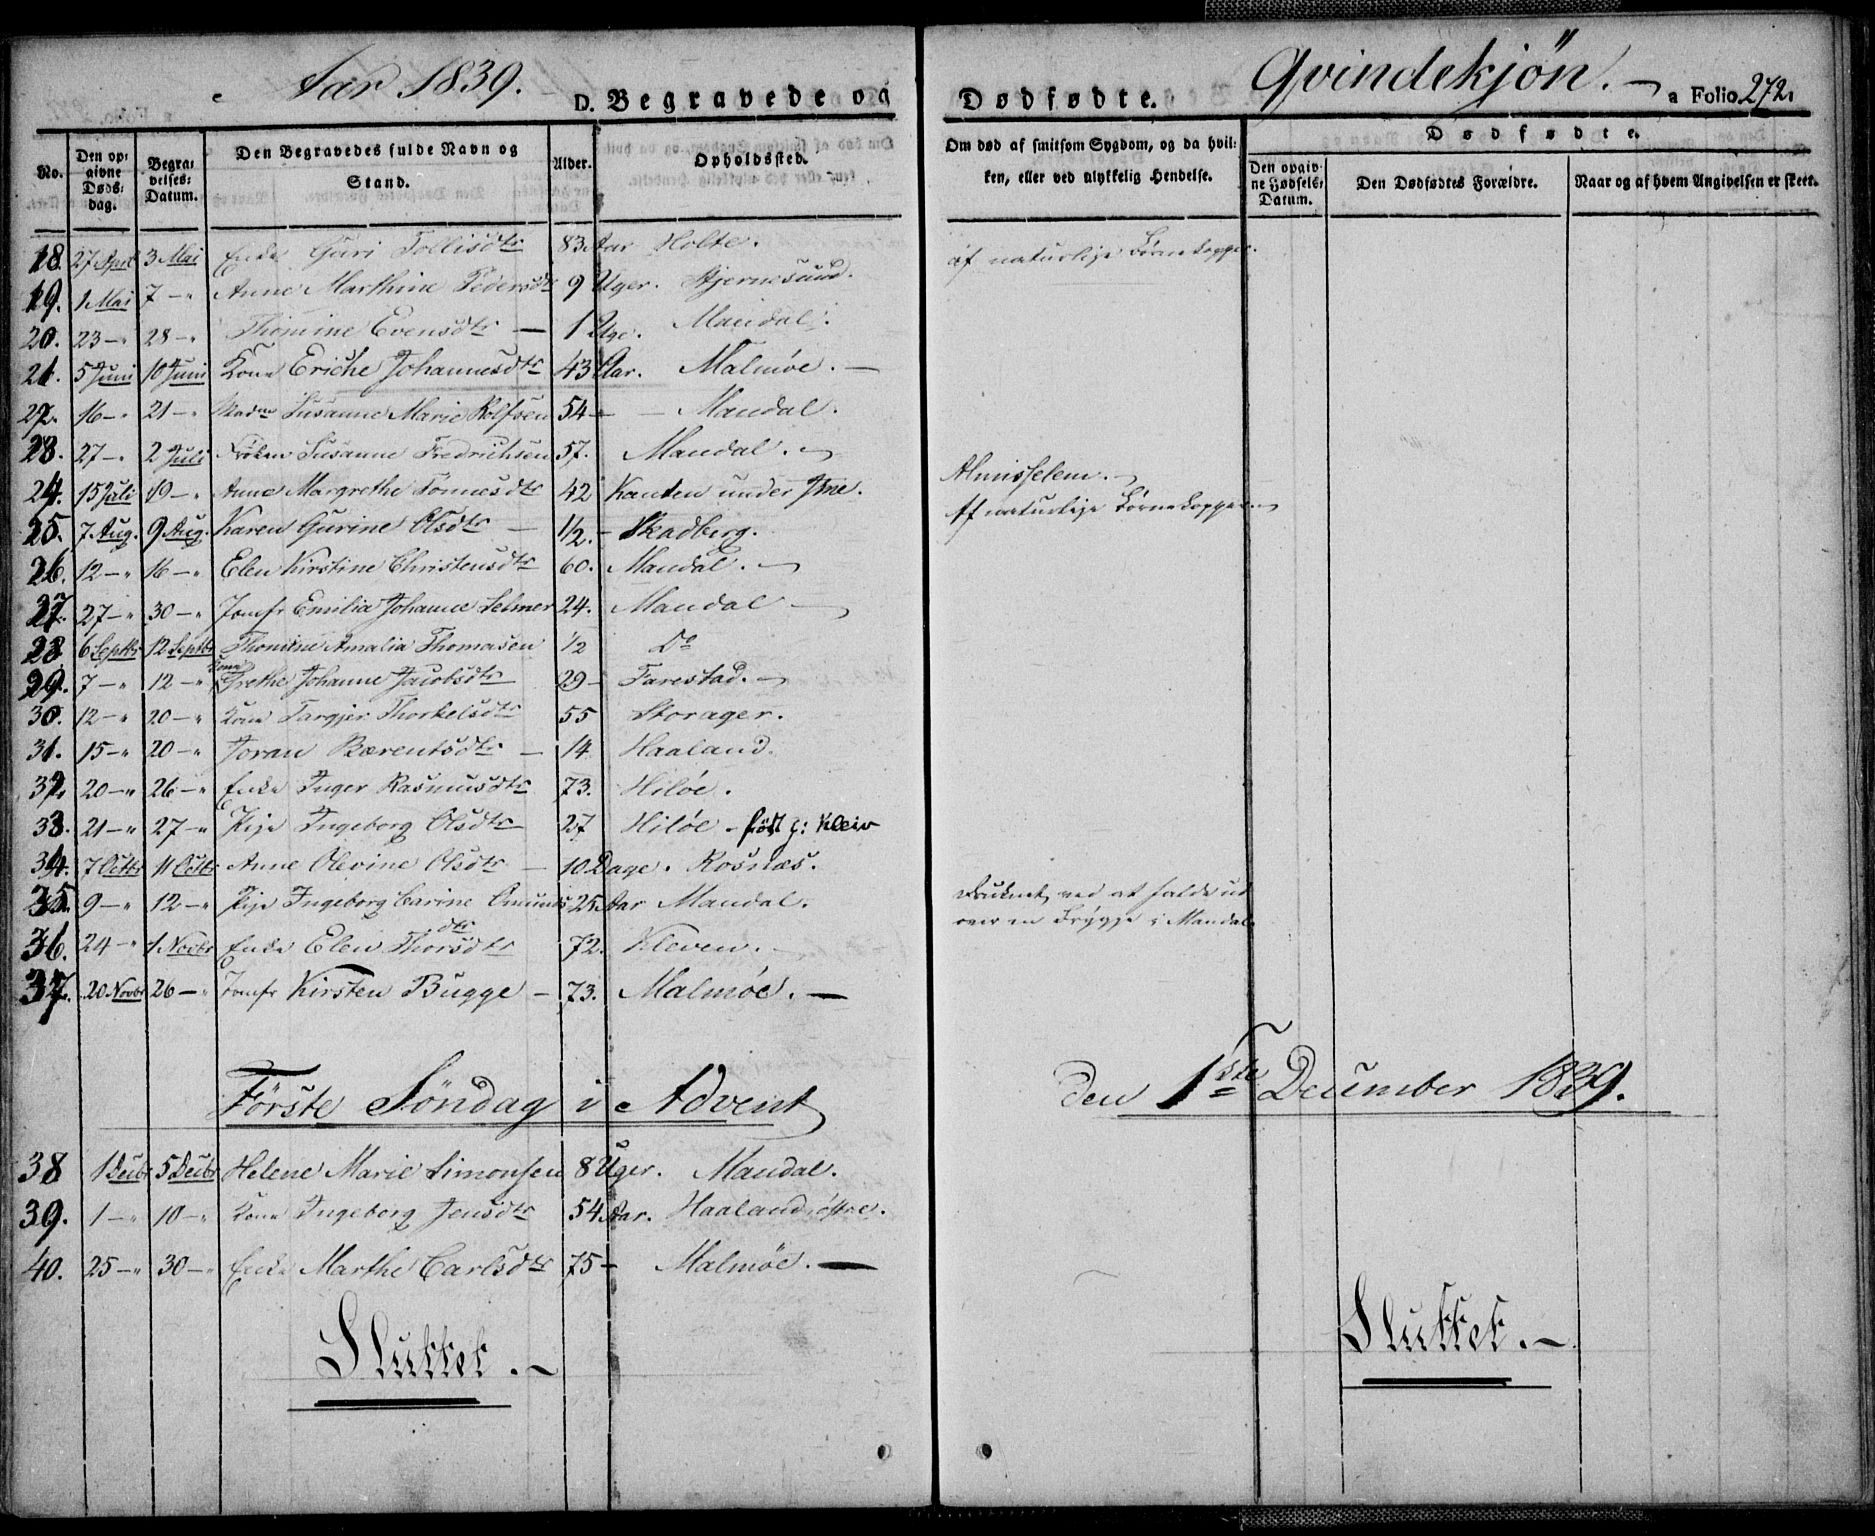 Aar 1839.
D. Begravede og
Dødfødte.
Qvindekjøn. —
a Folio 272.
No.
Den op-
givne
Døds-
dag.
Begra-
velses-
Datum.
Den Begravedes fulde Navn og
Stand.
Alder.
Opholdssted.
Om død af smitsom Sygdom, og da hvil-
ken, eller ved ulykkelig Hendelse.
Dødfødte.
Den opgiv-
ne Fødsels-
Datum.
Den Dødfødtes Forældre.
Naar og af hvem Angivelsen er skeet.
18. 27 April 3 Mai Enke Guri Tollisdtr 83 Aar Holte. af naturlige Børnekopper.
19. 1 Mai 7 — " Anne Marthine Pedersdtr 9 Uger. Stjernesund.
20. 23 — " 28 — " Thomine Evensdtr — 1 Uge. Mandal.
21. 5 Juni 10 Juni Kone Eriche Johannesdtr 43 Aar. Malmøe. —
22. 16 — " 21 — " Madme Susanne Marie Rolfsen 54 — — Mandal.
23. 27 — " 2 Juli Frøken Susanne Fredrichsen 57. Mandal. —
24. 15 Juli 19 — " Anne Margrethe Tønnesdtr 42 Kanten under Ime. Almisselem. —
25. 7 Aug. 9 Aug. Karen Gurine Olsdtr — 1/2. — Skadberg. Af naturlige Børnekopper. —
26. 12 — " 16 — " Elen Kirstine Christensdtr 60. Mandal. —
27. 27 — " 30 — " Jomfr Emilia Johanne Selmer 24. Mandal —
28. 6 Septbr 12 Septbr Thomine Amalia Thomasen 1/2 Do
29. 7 — " 12 — " Kone Grethe Johanne Jacobsdtr 29 — Farestad. —
30. 12 — " 20 — " Kone Targjer Thorkelsdtr 55 Storager.
31. 15 — " 20 — " Joran Bærentsdtr — 14 Haaland.
32. 20 — " 26 — " Enke Inger Rasmusdtr 73. Hilöe.
33. 21 — " 27 — " Pige Ingeborg Olsdtr — 27 Hilöe — född p: Kleiv
34. 7 Octbr 11 Octbr Anne Olevine Olsdtr — 10 Dage. Rosnæs.
35. 9 — " 12 — " Pige Ingeborg Carine Omunds 25 Aar Mandal. Druknet ved at falde ud
dtr over en Brygge i Mandal.
36. 24 — " 1 Novbr Enke Elen Thorsdtr 72. Kleven. —
37. 20 Novbr 26 — " Jomfr Kirsten Bugge — 73. Malmöe. —
Förste Söndag i Advent den 1ste December 1839.
38 1 Decbr 5 Decbr Helene Marie Simonsen 8 Uger. Mandal.
39. 1 — " 10 — " Kone Ingeborg Jensdtr 54 Aar. Haaland östre.
40. 25 — " 30 — " Enke Marthe Carlsdtr 75 — Malmöe. —
Sluttet. —
Sluttet. —